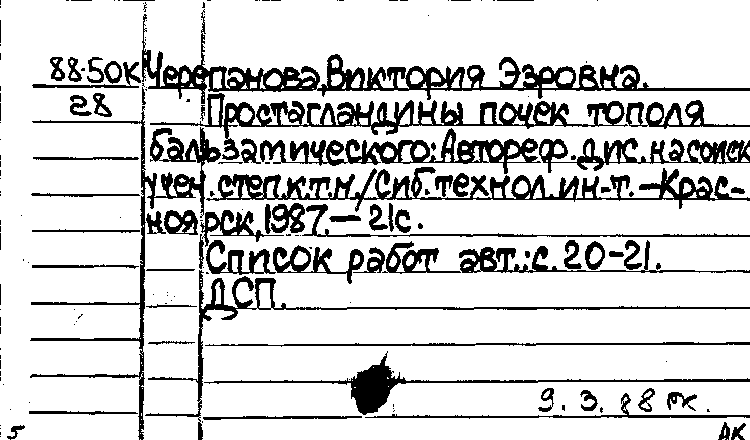 88-50К Черепанова, Виктория Эзровна.
28 Простагландины почек тополя
бальзамического: Автореф. дис. на соиск
учен. степ. к.т.н. / Сиб. технол. ин-т. — Крас-
ноярск, 1987. — 21с.
Список работ авт.: с. 20-21.
ДСП.
9. 3. 88
5 ДК